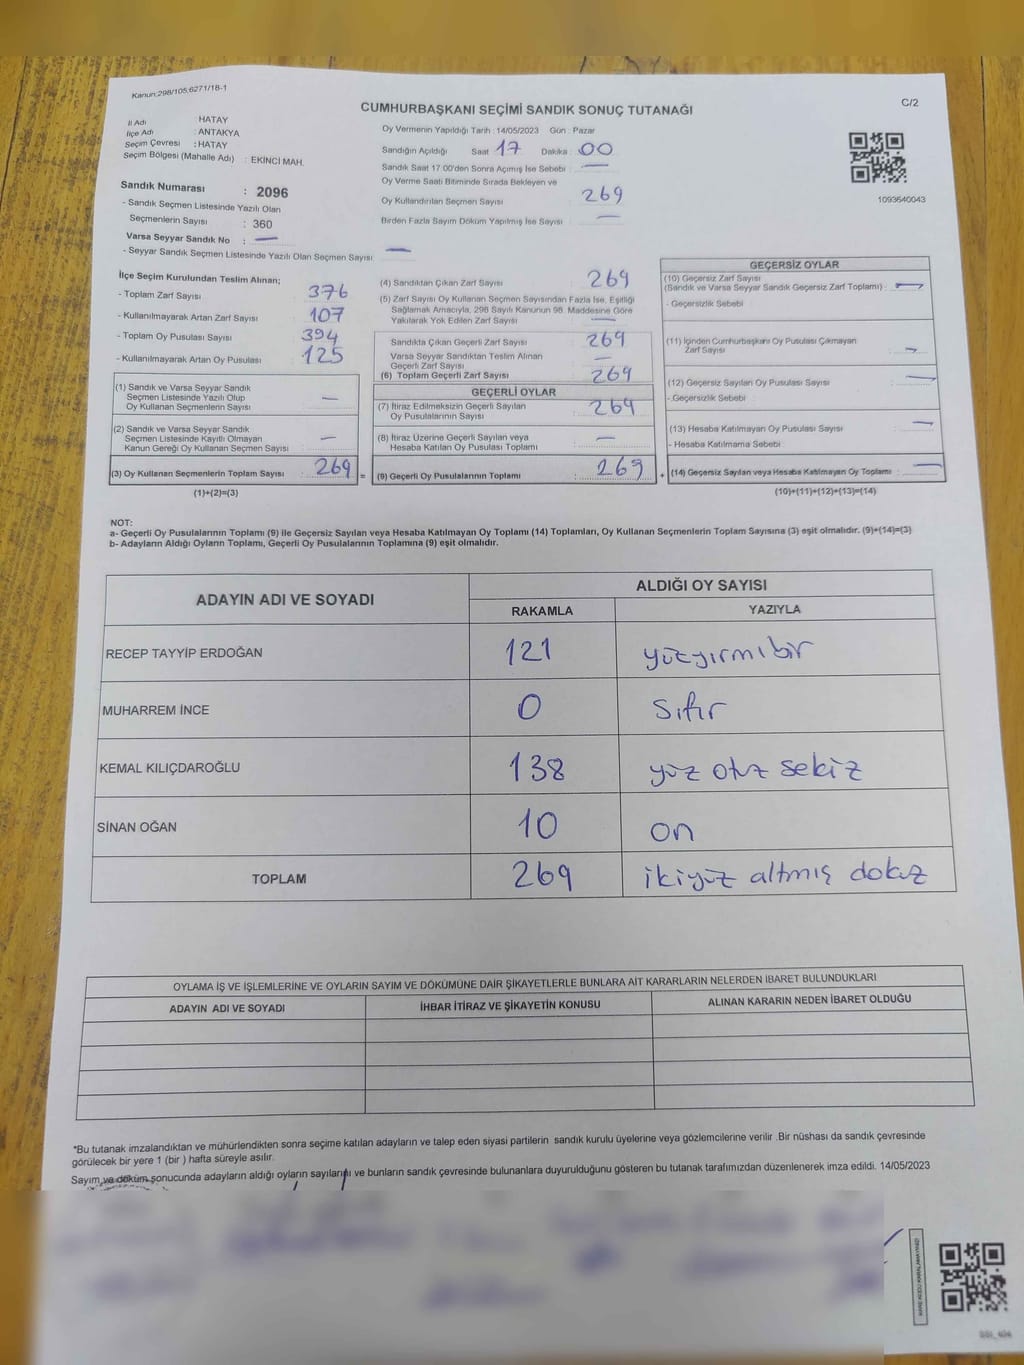 Kanun:298/105;6271/18-1
CUMHURBAŞKANI SEÇİMİ SANDIK SONUÇ TUTANAĞI
C/2
İl Adı HATAY
İlçe Adı : ANTAKYA
Seçim Çevresi : HATAY
Seçim Bölgesi (Mahalle Adı) : EKİNCİ MAH.
Sandık Numarası : 2096
- Sandık Seçmen Listesinde Yazılı Olan
Seçmenlerin Sayısı : 360
Varsa Seyyar Sandık No : —
- Seyyar Sandık Seçmen Listesinde Yazılı Olan Seçmen Sayısı: —
Oy Vermenin Yapıldığı Tarih : 14/05/2023 Gün : Pazar
Sandığın Açıldığı Saat 17 Dakika : 00
Sandık Saat 17:00'den Sonra Açımış İse Sebebi : —
Oy Verme Saati Bitiminde Sırada Bekleyen ve
Oy Kullandırılan Seçmen Sayısı 269
Birden Fazla Sayım Döküm Yapılmış İse Sayısı : —
1093640043
İlçe Seçim Kurulundan Teslim Alınan;
- Toplam Zarf Sayısı : 376
- Kullanılmayarak Artan Zarf Sayısı : 107
- Toplam Oy Pusulası Sayısı : 394
- Kullanılmayarak Artan Oy Pusulası : 125
(1) Sandık ve Varsa Seyyar Sandık
Seçmen Listesinde Yazılı Olup
Oy Kullanan Seçmenlerin Sayısı : —
(2) Sandık ve Varsa Seyyar Sandık
Seçmen Listesinde Kayıtlı Olmayan
Kanun Gereği Oy Kullanan Seçmen Sayısı : —
(3) Oy Kullanan Seçmenlerin Toplam Sayısı : 269 =
(1)+(2)=(3)
(4) Sandıktan Çıkan Zarf Sayısı : 269
(5) Zarf Sayısı Oy Kullanan Seçmen Sayısından Fazla İse, Eşitliği
Sağlamak Amacıyla, 298 Sayılı Kanunun 98. Maddesine Göre
Yakılarak Yok Edilen Zarf Sayısı : —
Sandıkta Çıkan Geçerli Zarf Sayısı : 269
Varsa Seyyar Sandıktan Teslim Alınan
Geçerli Zarf Sayısı : —
(6) Toplam Geçerli Zarf Sayısı : 269
GEÇERLİ OYLAR
(7) İtiraz Edilmeksizin Geçerli Sayılan
Oy Pusulalarının Sayısı : 269
(8) İtiraz Üzerine Geçerli Sayılan veya
Hesaba Katılan Oy Pusulası Toplamı : —
(9) Geçerli Oy Pusulalarının Toplamı : 269 +
GEÇERSİZ OYLAR
(10) Geçersiz Zarf Sayısı
(Sandık ve Varsa Seyyar Sandık Geçersiz Zarf Toplamı) : —
- Geçersizlik Sebebi
(11) İçinden Cumhurbaşkanı Oy Pusulası Çıkmayan
Zarf Sayısı : —
(12) Geçersiz Sayılan Oy Pusulası Sayısı : —
- Geçersizlik Sebebi
(13) Hesaba Katılmayan Oy Pusulası Sayısı : —
- Hesaba Katılmama Sebebi
(14) Geçersiz Sayılan veya Hesaba Katılmayan Oy Toplamı : —
(10)+(11)+(12)+(13)=(14)
NOT:
a- Geçerli Oy Pusulalarının Toplamı (9) ile Geçersiz Sayılan veya Hesaba Katılmayan Oy Toplamı (14) Toplamları, Oy Kullanan Seçmenlerin Toplam Sayısına (3) eşit olmalıdır. (9)+(14)=(3)
b- Adayların Aldığı Oyların Toplamı, Geçerli Oy Pusulalarının Toplamına (9) eşit olmalıdır.
ADAYIN ADI VE SOYADI ALDIĞI OY SAYISI
RAKAMLA YAZIYLA
RECEP TAYYİP ERDOĞAN 121 yüzyirmibir
MUHARREM İNCE 0 sıfır
KEMAL KILIÇDAROĞLU 138 yüz otuz sekiz
SİNAN OĞAN 10 on
TOPLAM 269 ikiyüz altmış dokuz
OYLAMA İŞ VE İŞLEMLERİNE VE OYLARIN SAYIM VE DÖKÜMÜNE DAİR ŞİKAYETLERLE BUNLARA AİT KARARLARIN NELERDEN İBARET BULUNDUKLARI
ADAYIN ADI VE SOYADI İHBAR İTİRAZ VE ŞİKAYETİN KONUSU ALINAN KARARIN NEDEN İBARET OLDUĞU
*Bu tutanak imzalandıktan ve mühürlendikten sonra seçime katılan adayların ve talep eden siyasi partilerin sandık kurulu üyelerine veya gözlemcilerine verilir .Bir nüshası da sandık çevresinde
görülecek bir yere 1 (bir ) hafta süreyle asılır.
Sayım ve döküm sonucunda adayların aldığı oyların sayılarını ve bunların sandık çevresinde bulunanlara duyurulduğunu gösteren bu tutanak tarafımızdan düzenlenerek imza edildi. 14/05/2023